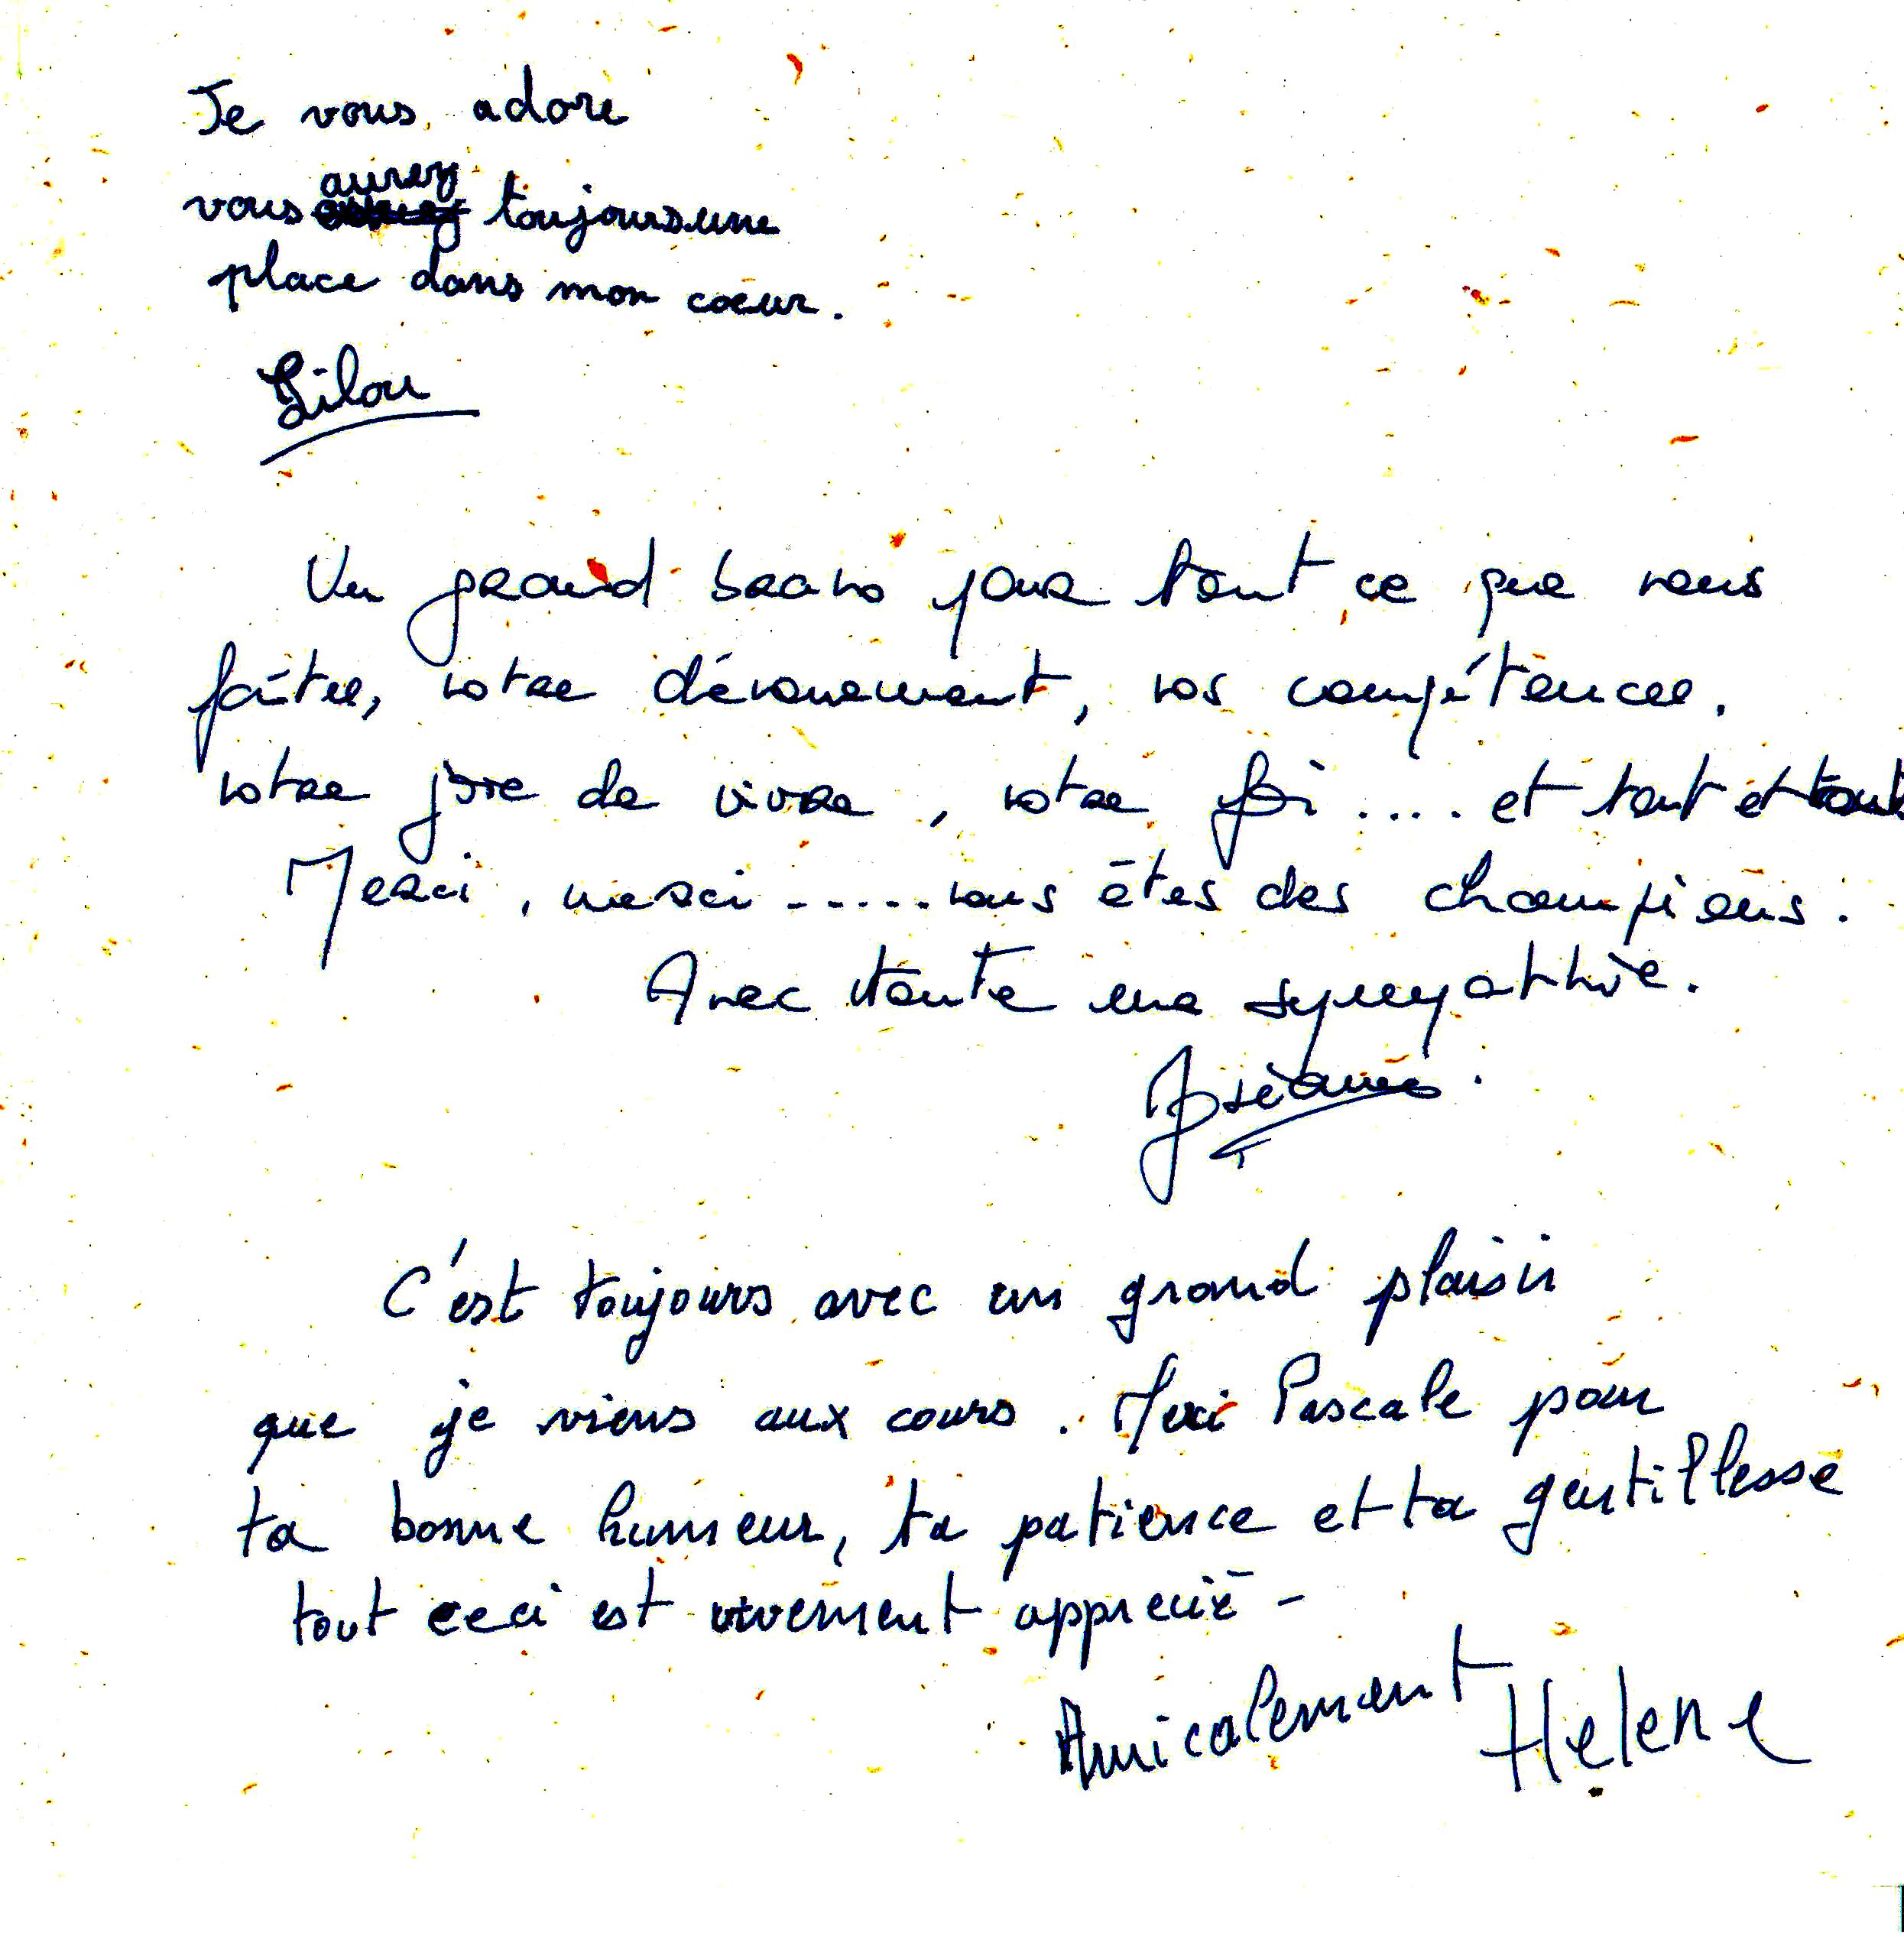 Je vous adore
vous aurez toujours une
place dans mon coeur.
Lilou
Un grand bravo pour tout ce que vous
faîtes, votre dévouement, vos compétences.
votre joie de vivre, votre foi .... et tout et tout
Merci, merci ----- vous êtes des champions.
Avec toute ma sympathie.
C'est toujours avec un grand plaisir
que je viens aux cours. Merci Pascale pour
ta bonne humeur, ta patience et ta gentillesse
tout ceci est vivement apprecié -
Amicalement Helene